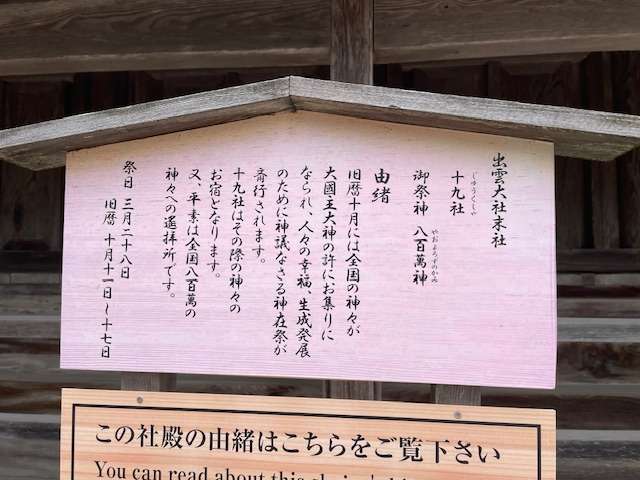 出雲大社末社
じゅうくしゃ
十九社
やおよろずのかみ
御祭神 八百萬神
由緒
旧暦十月には全国の神々が
大國主大神の許にお集りに
なられ、人々の幸福、生成発展
のために神議なさる神在祭が
斎行されます。
十九社はその際の神々の
お宿となります。
又、平素は全国八百萬の
神々への遥拝所です。
祭日 三月二十八日
旧暦 十月十一日～十七日
この社殿の由緒はこちらをご覧下さい
You can read about this shrine's hi